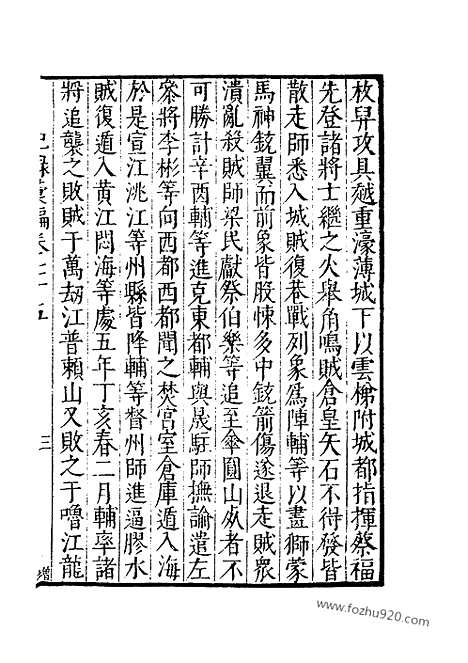 枚舁攻具越重濠薄城下以雲梯附城都指揮蔡福
先登諸將士繼之火舉角鳴賊倉皇矢石不得發皆
散走師悉入城賊復巷戰列象爲陣輔等以畫獅蒙
馬神銃翼而前象皆股悚多中銃箭傷遂退走賊衆
潰亂殺賊師梁民獻祭伯樂等追至傘圓山死者不
可勝計辛酉輔等進克東都輔與晟駐師撫諭遣左
叅將李彬等向西都西都聞之焚宮室倉庫遁入海
於是宣江洮江等州縣皆降輔等督州師進逼膠水
賊復遁入黃江悶海等處五年丁亥春二月輔率諸
將追襲之敗賊于萬劫江普賴山又敗之于嚕江龍
紀錄彙編卷之十五 三
www.fozhu920.com